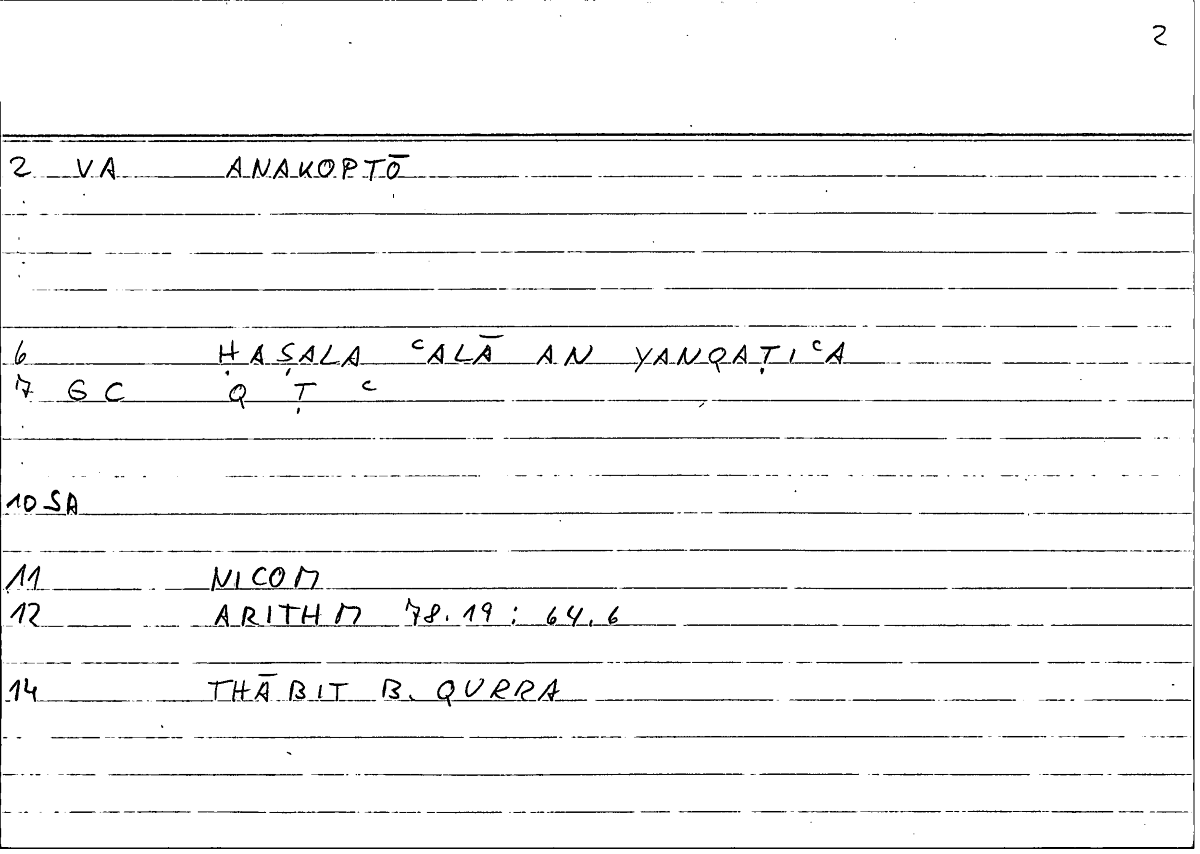 2
2 VA ANAKOPTŌ
6 ḤAṢALA ᶜALĀ AN YANQAṬIᶜA
7 GC Q Ṭ ᶜ
10 SA
11 NICOM
12 ARITHM 78.19 : 64.6
14 THĀBIT B. QURRA